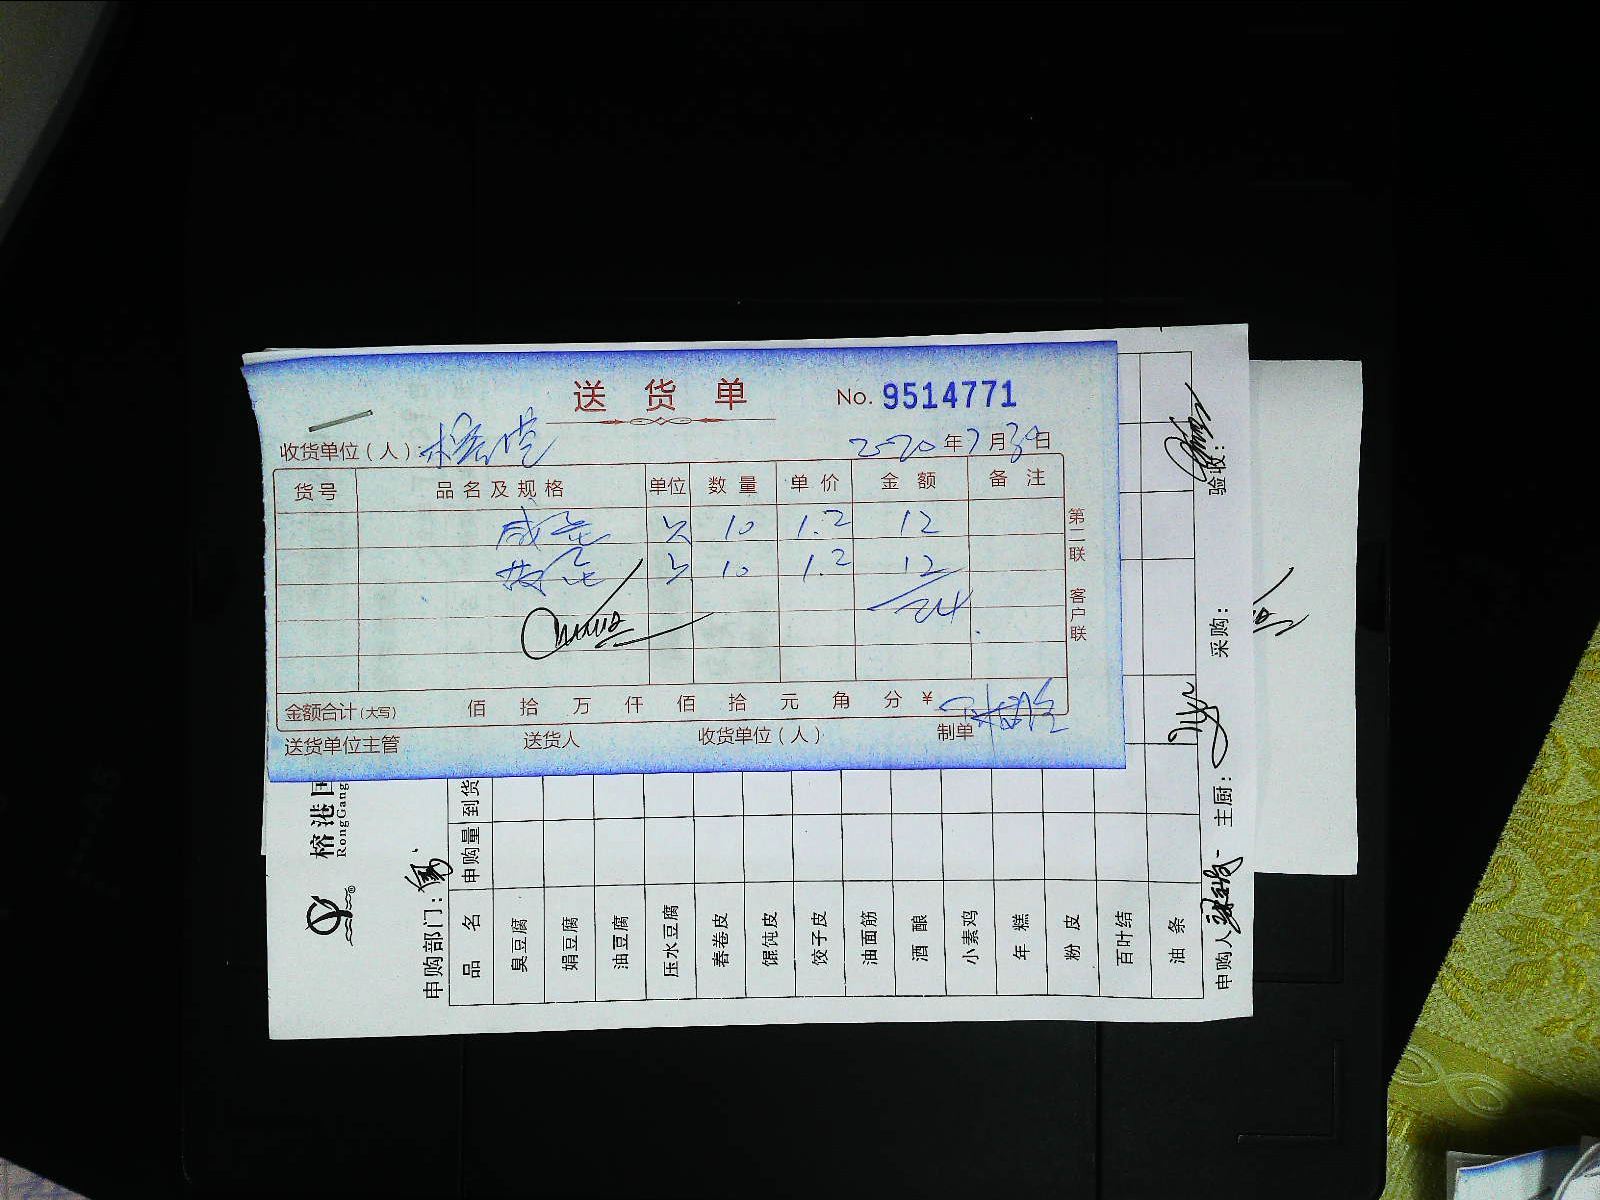 送货单 No. 9514771
收货单位(人): 2020年7月30日
货号 品名及规格 单位 数量 单价 金额 备注
咸 只 10 1.2 12
10 1.2 12
24
金额合计(大写) 佰 拾 万 仟 佰 拾 元 角 分 ¥
送货单位主管 送货人 收货单位(人) 制单
第二联 客户联
榕港国
RongGang
®
申购部门:
品名 申购量 到货
臭豆腐
娟豆腐
油豆腐
压水豆腐
春卷皮
馄饨皮
饺子皮
油面筋
酒酿
小素鸡
年糕
粉皮
百叶结
油条
申购人 主厨: 采购: 验收: